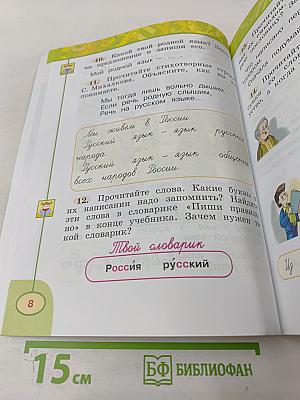 10. Какой твой родной язык?
чи предложение и запиши его.
Мой родной язык — ...
11. Прочитайте стихотворные
С. Михалкова. Объясните, как вы
понимаете.
Мы тогда лишь вольно дышим,
Если речь родную слышим,
Речь на русском языке...
Мы живём в России.
Русский язык — язык русского
народа.
Русский язык — язык общения
всех народов России.
12. Прочитайте слова. Какие буквы в
их написании надо запомнить? Найдите
эти слова в словарике «Пиши правиль-
но» в конце учебника. Зачем нужен
кой словарик?
Твой словарик
Россия русский
8
15 см
БФ БИБЛИОФАН